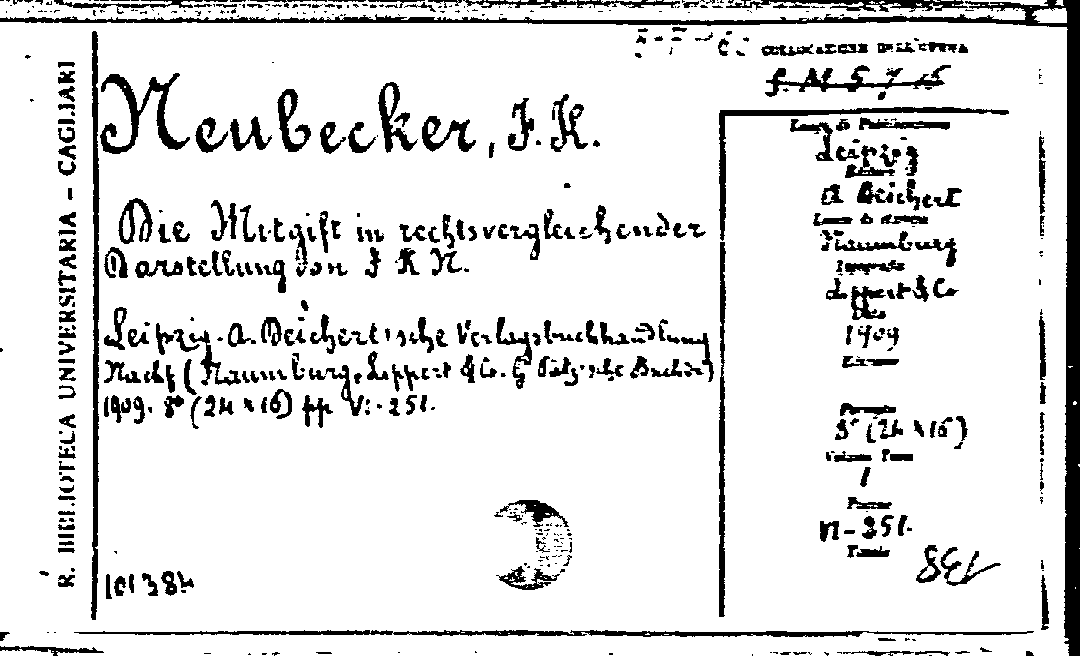 R. BIBLIOTECA UNIVERSITARIA - CAGLIARI
COLLOCAZIONE DELL'OPERA
Neubecker, F. K.
Die Mitgift in rechtsvergleichender
Darstellung von F K N.
Leipzig. A. Deichert'sche Verlagsbuchhandlung
Nachf (Naumburg, Lippert & Co. G Pätz'sche Buchdr)
1909. 8° (24 x 16) pp VI-251.
101384
Luogo di Pubblicazione
Leipzig
Editore
A Deichert
Luogo di stampa
Naumburg
Tipografo
Lippert & Co
Data
1909
Edizione
Formato
8° (24 x 16)
Volume Tomo
1
Pagine
VI-251.
Tavole